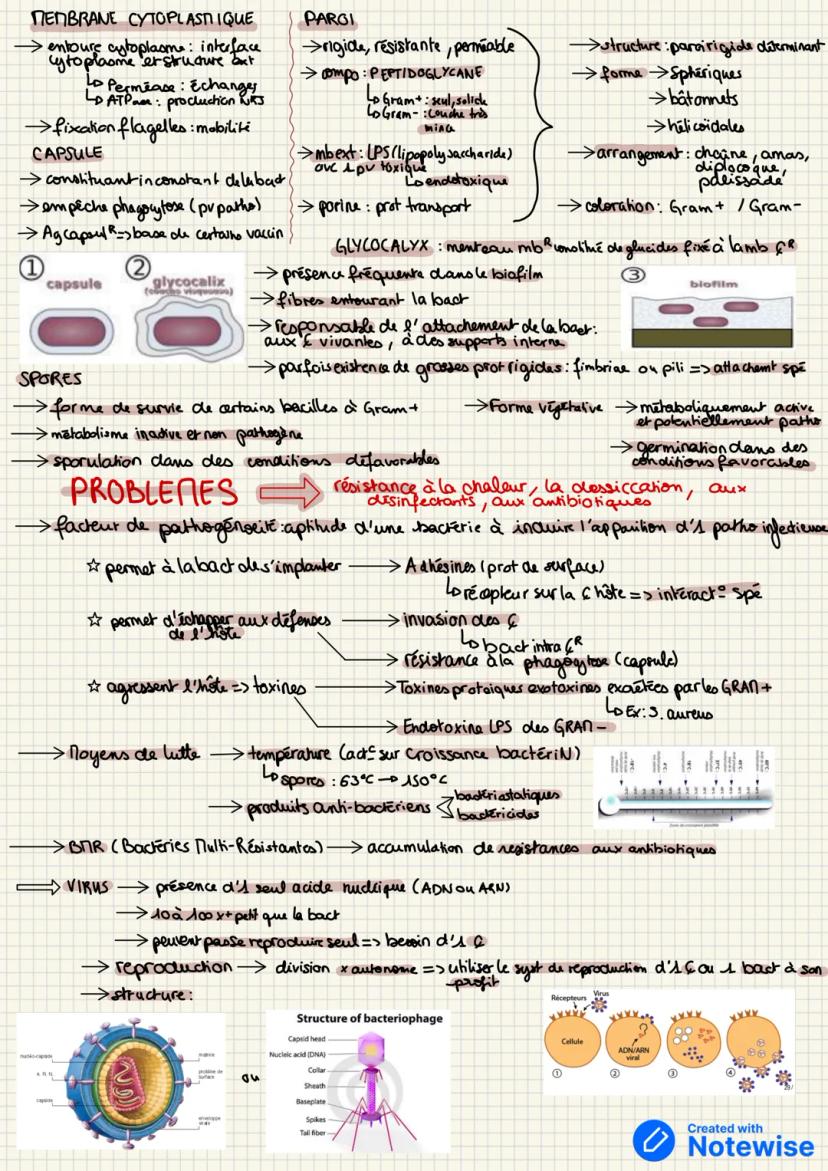 MEMBRANE CYTOPLASTIQUE
→ entoure cytoplasme : interface
cytoplasme et structure ext
↳ Perméase : échanges
↳ ATPase : production NRJ
→ fixation flagelles : mobilité
CAPSULE
→ constituant inconstant de la bact
→ empêche phagocytose (pv patho)
→ Ag capsulR => base de certains vaccin
PAROI
→ rigide, résistante, perméable
→ compo : PEPTIDOGLYCANE
↳ Gram+ : seul, solide
↳ Gram- : couche très
mince
→ mb ext : LPS (lipopolysaccharide)
avc 1 pv toxique
↳ endotoxique
→ porine : prot transport
→ structure : paroi rigide déterminant
→ forme → sphériques
→ bâtonnets
→ hélicoïdales
→ arrangement : chaîne, amas,
diplocoque,
palissade
→ coloration : Gram+ / Gram-
GLYCOCALYX : menteau mbR constitué de glucides fixé à la mb ₵R
① capsule
② glycocalix
(couche visqueuse)
③ biofilm
→ présence fréquente dans le biofilm
→ fibres entourant la bact
→ responsable de l'attachement de la bact :
aux ₵ vivantes, à des supports interne
→ parfois existence de grosses prot rigides : fimbriae ou pili => attachemt spé
SPORES
→ forme de survie de certains bacilles à Gram+
→ métabolisme inactive et non pathogène
→ sporulation dans des conditions défavorables
→ Forme végétative → métaboliquement active
et potentiellement patho
→ germination dans des
conditions favorables
PROBLEMES ⇒ résistance à la chaleur, la dessiccation, aux
disinfectants, aux antibiotiques
→ facteur de pathogénoicité : aptitude d'une bactérie à induire l'apparition d'1 patho infectieuse
☆ permet à la bact de s'implanter → Adhésines (prot de surface)
↳ récepteur sur la ₵ hôte => interact° spé
☆ permet d'échapper aux défenses
de l'hôte
→ invasion des ₵
↳ bact intra ₵R
→ résistance à la phagocytose (capsule)
☆ agressent l'hôte => toxines → Toxines protéiques exotoxines excrétées par les GRAM+
↳ Ex : S. aureus
→ Endotoxine LPS des GRAM-
→ Moyens de lutte → température (act° sur croissance bactériN)
↳ spores : 63°C → 150°C
→ produits anti-bactériens < bactériostatiques
bactéricides
→ BMR (Bactéries Multi-Résistantes) → accumulation de résistances aux antibiotiques
⇒ VIRUS → présence d'1 seul acide nucléique (ADN ou ARN)
→ 10 à 100 x + petit que la bact
→ peuvent pas se reproduire seul => besoin d'1 ₵
→ reproduction → division x autonome => utiliser le syst de reproduction d'1 ₵ ou 1 bact à son
profit
→ structure :
nucléo-capside
A. R. N.
capside
matrice
protéine de
surface
enveloppe
virale
ou
Structure of bacteriophage
Capsid head
Nucleic acid (DNA)
Collar
Sheath
Baseplate
Spikes
Tail fiber
Récepteurs
Virus
Cellule
ADN/ARN
viral
① ② ③ ④
Created with
Notewise